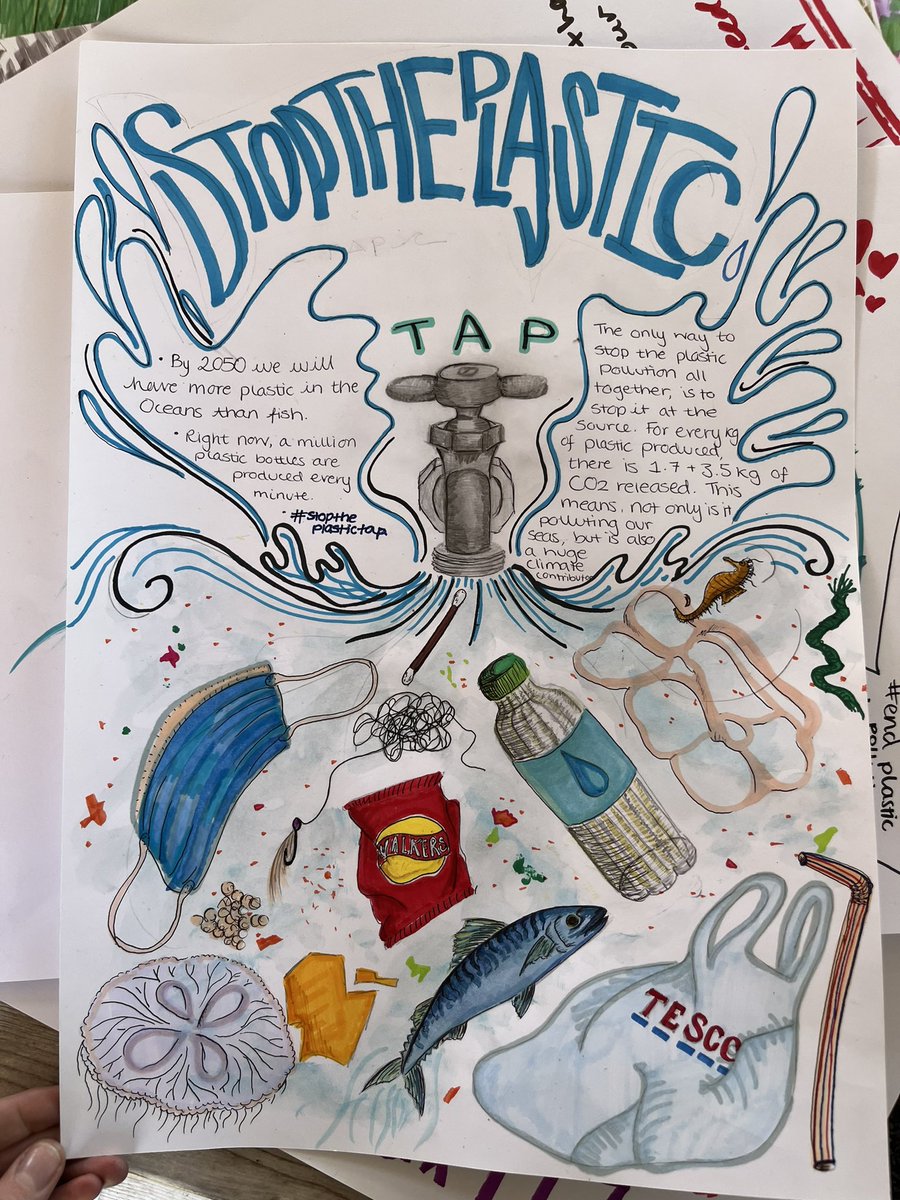 STOP THE PLASTIC
TAP
• By 2050 we will
have more plastic in the
Oceans than fish.
• Right now, a million
plastic bottles are
produced every
minute.
• #stopthe
plastictap
The only way to
stop the plastic
pollution all
together, is to
stop it at the
source. For every kg
of plastic produced,
there is 1.7 + 3.5 kg of
CO2 released. This
means, not only is it
polluting our
seas, but is also
a huge
climate
contributor
WALKERS
TESCO
#end plastic